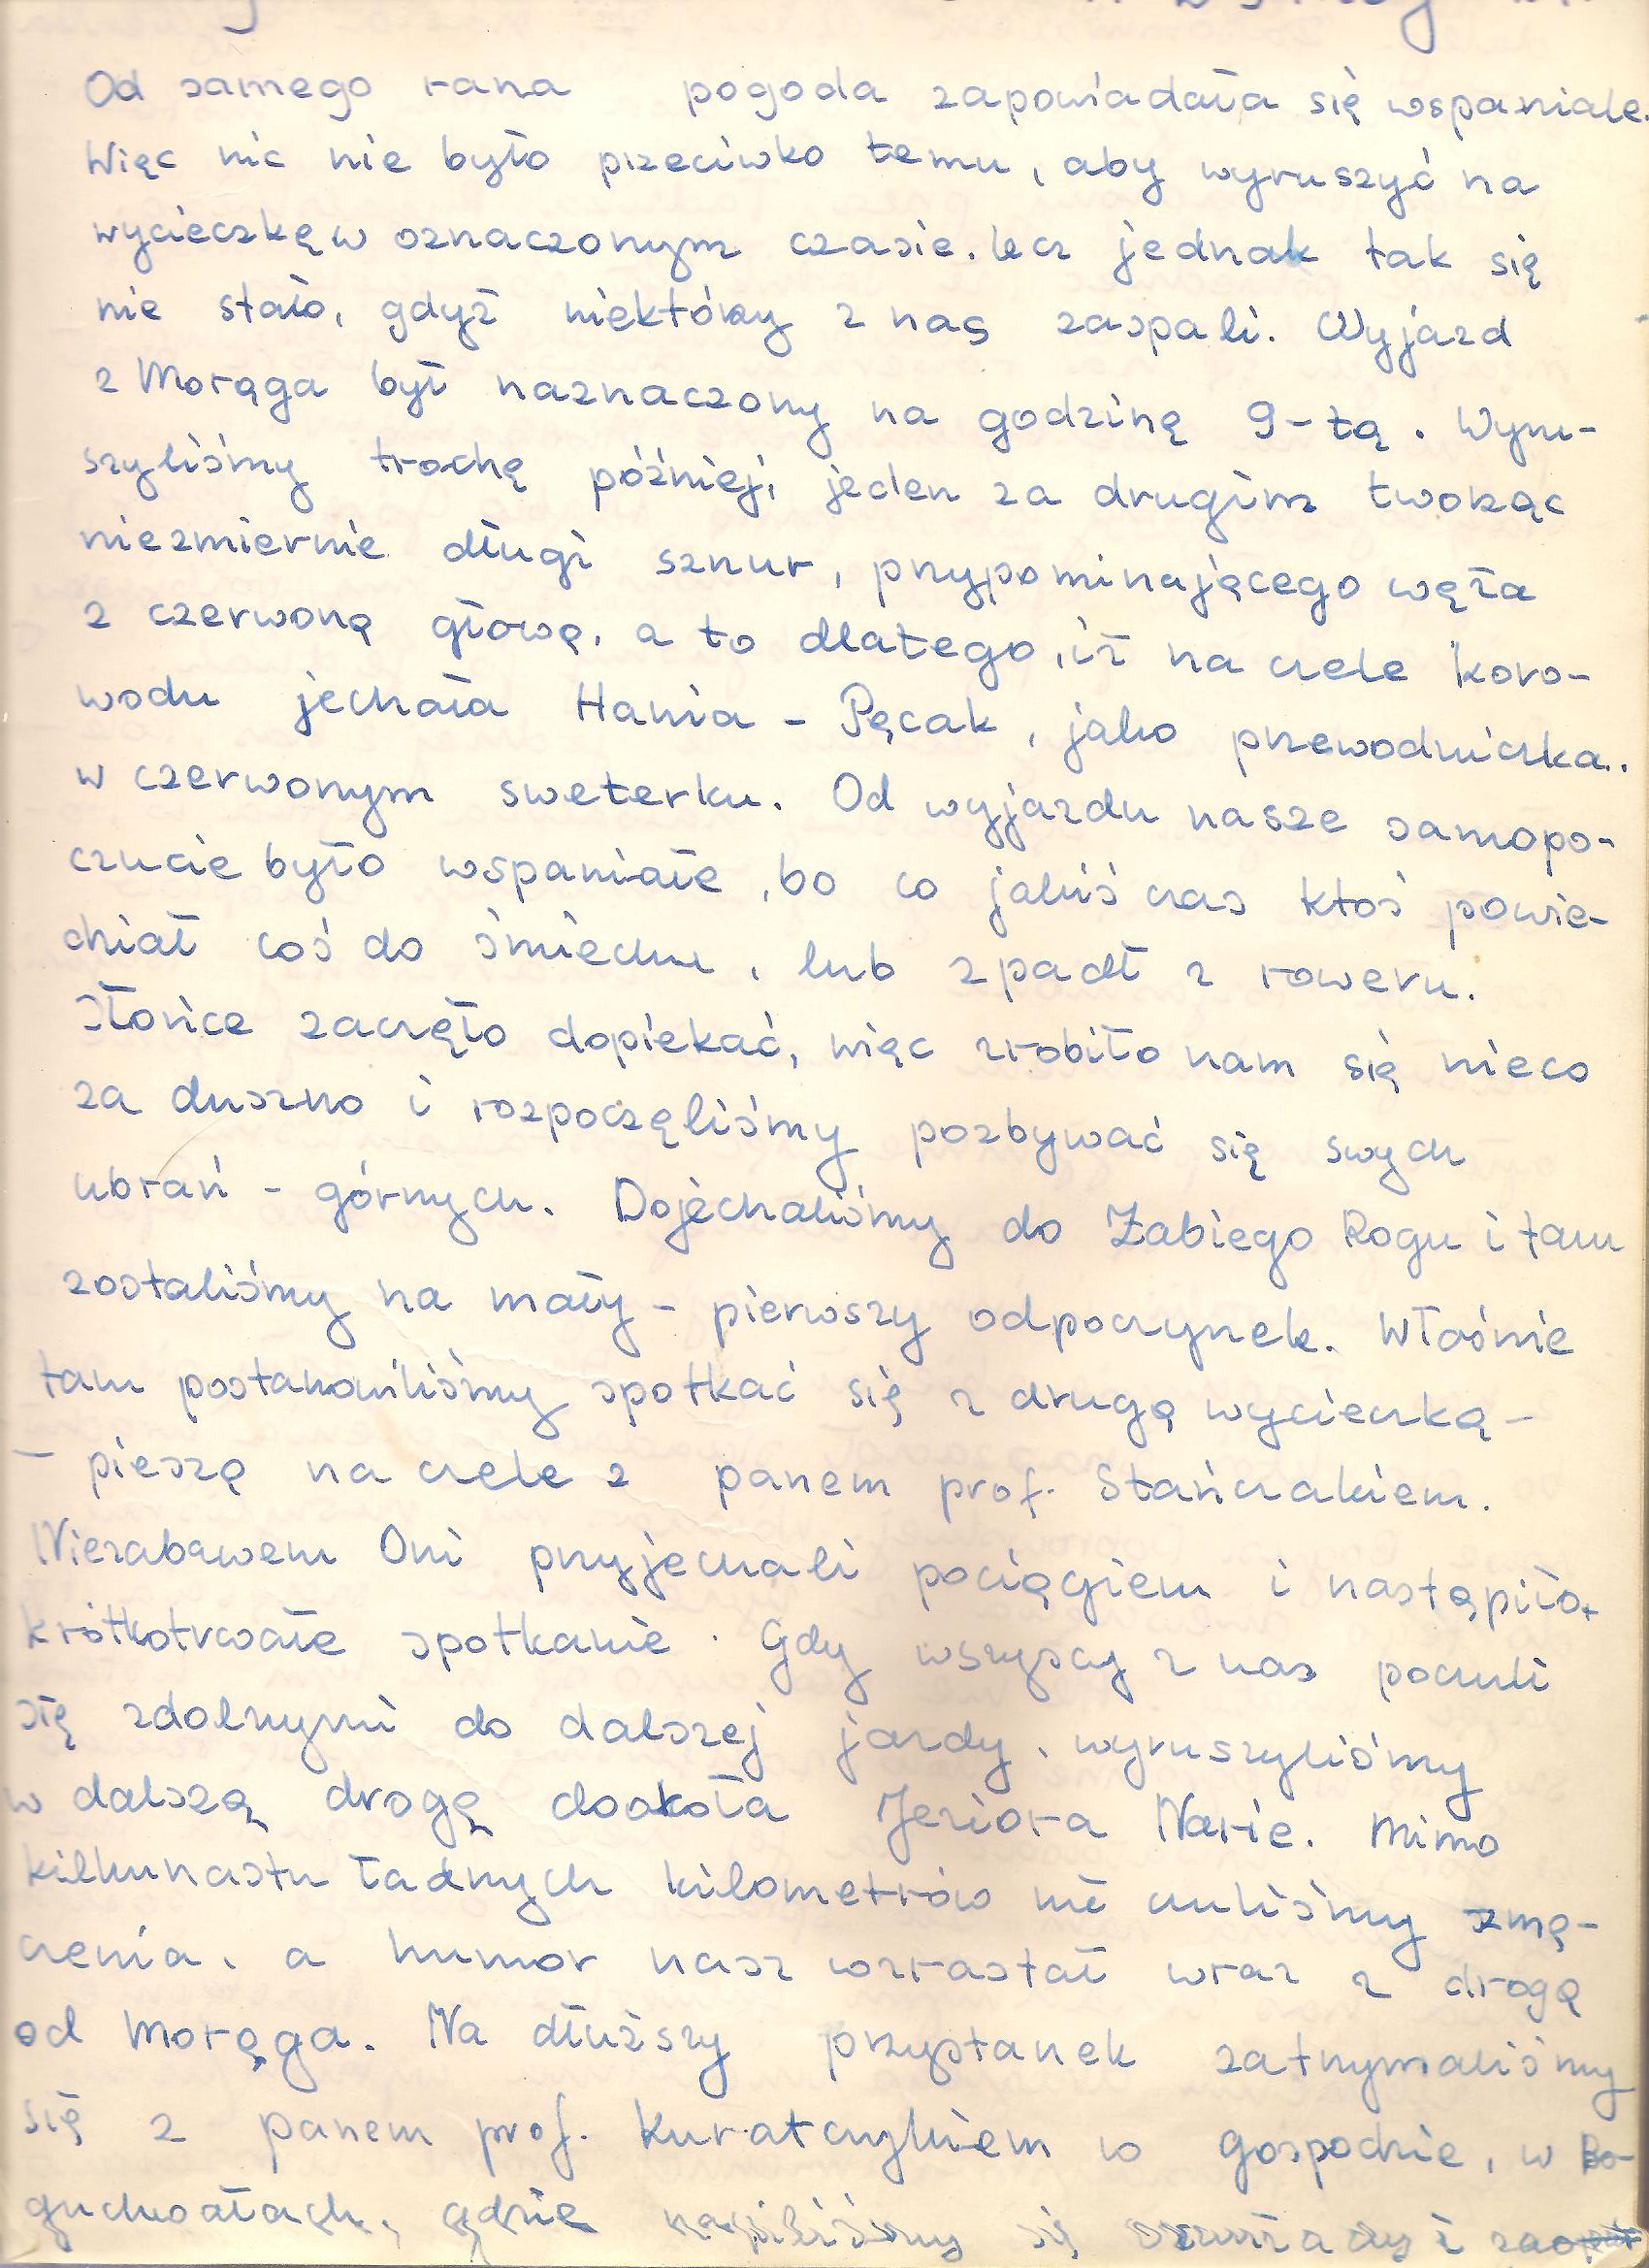 Od samego rana pogoda zapowiadała się wspaniale.
Więc nic nie było przeciwko temu, aby wyruszyć na
wycieczkę w oznaczonym czasie. Lecz jednak tak się
nie stało, gdyż niektórzy z nas zaspali. Wyjazd
z Morąga był naznaczony na godzinę 9-tą. Wyru-
szyliśmy trochę później, jeden za drugim tworząc
niezmiernie długi sznur, przypominającego węża
z czerwoną głową, a to dlatego, iż na czele koro-
wodu jechała Hania - Pęcak, jako przewodniczka..
w czerwonym sweterku. Od wyjazdu nasze samopo-
czucie było wspaniałe, bo co jakiś czas ktoś powie-
dział coś do śmiechu, lub zpadł z roweru.
Słońce zaczęło dopiekać, więc zrobiło nam się nieco
za duszno i rozpoczęliśmy pozbywać się swych
ubrań - górnych. Dojechaliśmy do Żabiego Rogu i tam
zostaliśmy na mały - pierwszy odpoczynek. Właśnie
tam postanowiliśmy spotkać się z drugą wycieczką -
- pieszą na czele z panem prof. Stańczakiem.
Niezabawem Oni przyjechali pociągiem i nastąpiło
krótkotrwałe spotkanie. Gdy wszyscy z nas poczuli
się zdolnymi do dalszej jazdy, wyruszyliśmy
w dalszą drogę dookoła Jeziora Narie. Mimo
kilkunastu ładnych kilometrów nie czuliśmy zmę-
czenia, a humor nasz wzrastał wraz z drogą
od Morąga. Na dłuższy przystanek zatrzymaliśmy
się z panem prof. Kuratczykiem w gospodzie, w Bo-
guchwałach, gdzie napiliśmy się i